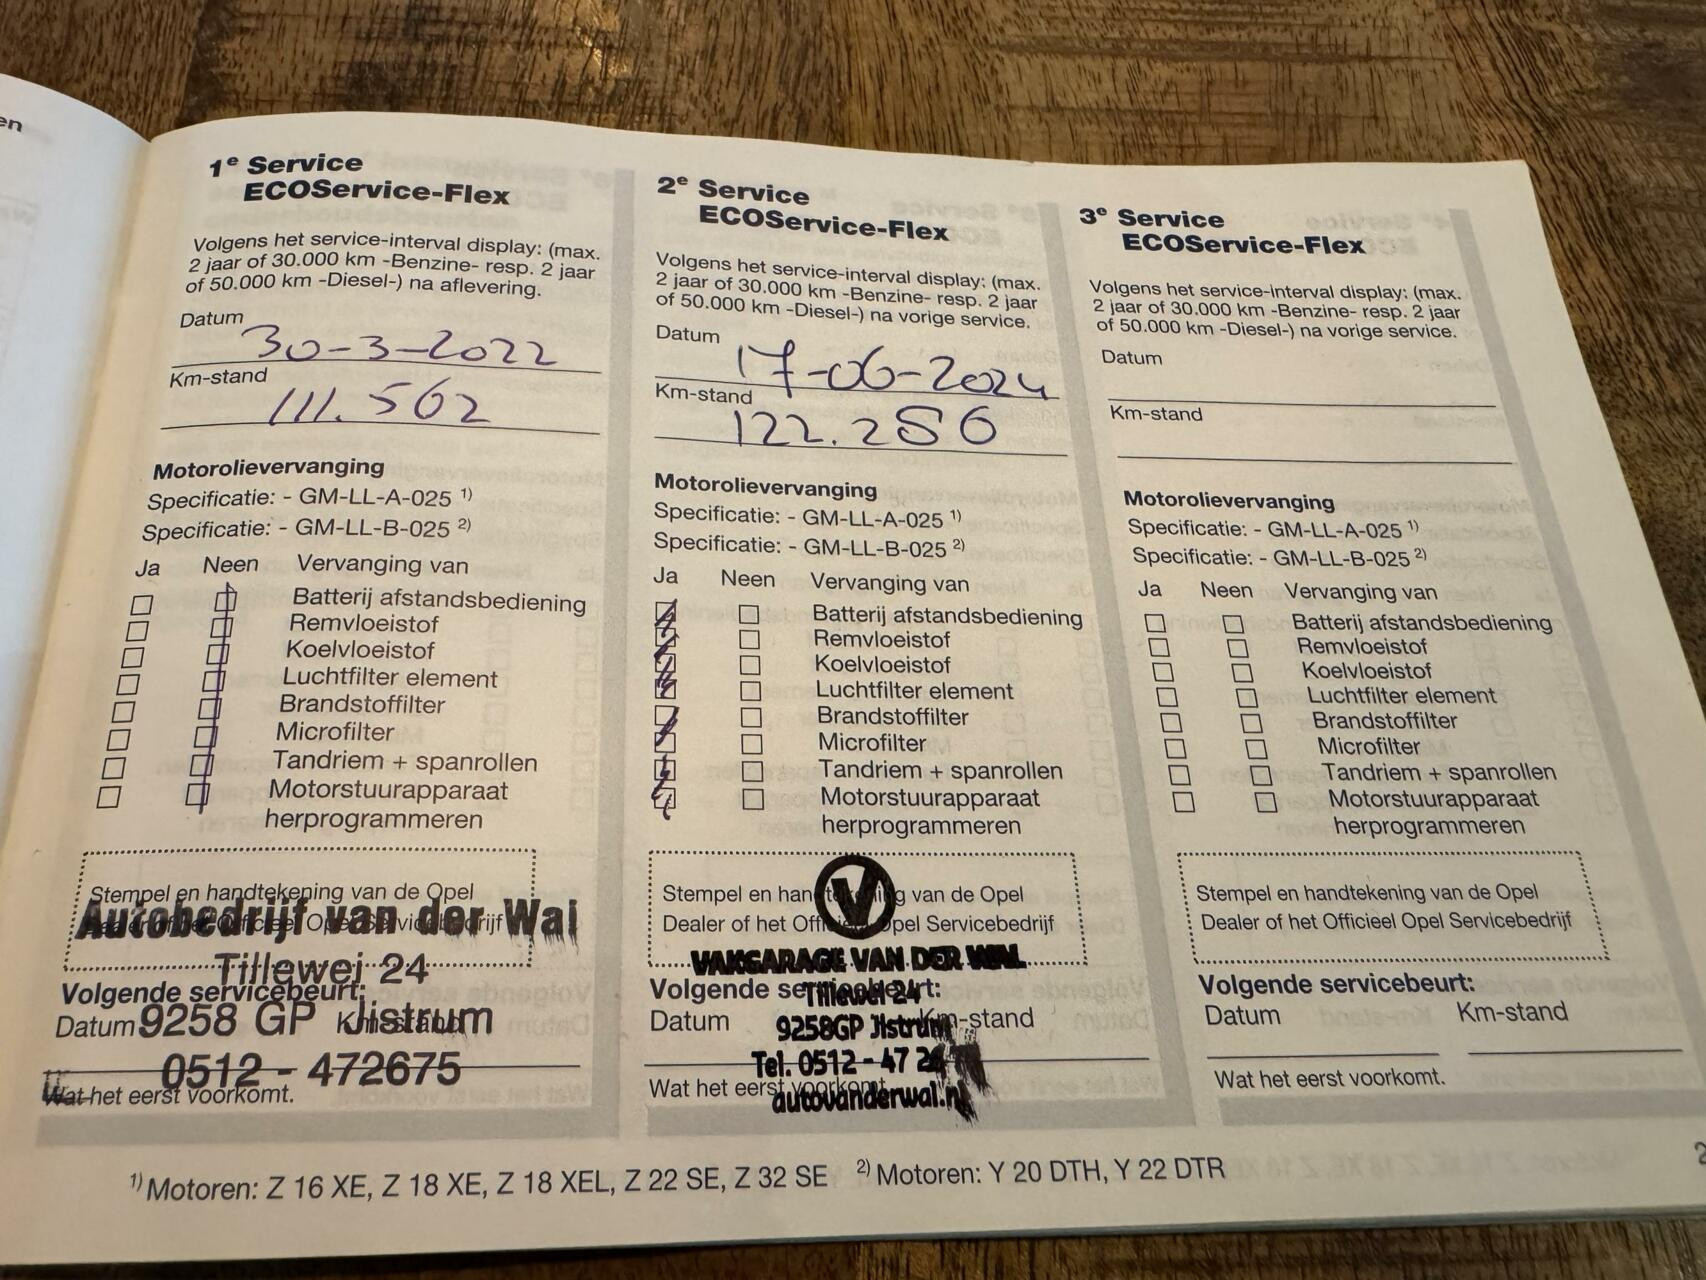 en
1e Service
ECOService-Flex
Volgens het service-interval display: (max.
2 jaar of 30.000 km -Benzine- resp. 2 jaar
of 50.000 km -Diesel-) na aflevering.
Datum
30-3-2022
Km-stand
111.562
Motorolievervanging
Specificatie: - GM-LL-A-025 1)
Specificatie: - GM-LL-B-025 2)
Ja Neen Vervanging van
Batterij afstandsbediening
Remvloeistof
Koelvloeistof
Luchtfilter element
Brandstoffilter
Microfilter
Tandriem + spanrollen
Motorstuurapparaat
herprogrammeren
Stempel en handtekening van de Opel
Dealer of het Officieel Opel Servicebedrijf
Autobedrijf van der Wal
Tillewei 24
Volgende servicebeurt:
Datum Km-stand
9258 GP Jistrum
0512 - 472675
Wat het eerst voorkomt.
2e Service
ECOService-Flex
Volgens het service-interval display: (max.
2 jaar of 30.000 km -Benzine- resp. 2 jaar
of 50.000 km -Diesel-) na vorige service.
Datum
17-06-2024
Km-stand
122.256
Motorolievervanging
Specificatie: - GM-LL-A-025 1)
Specificatie: - GM-LL-B-025 2)
Ja Neen Vervanging van
Batterij afstandsbediening
Remvloeistof
Koelvloeistof
Luchtfilter element
Brandstoffilter
Microfilter
Tandriem + spanrollen
Motorstuurapparaat
herprogrammeren
Stempel en handtekening van de Opel
Dealer of het Officieel Opel Servicebedrijf
V
VAKGARAGE VAN DER WAL
Volgende servicebeurt:
Tillewei 24
Datum Km-stand
9258GP Jistrum
Tel. 0512 - 47 26
Wat het eerst voorkomt.
autovanderwal.nl
3e Service
ECOService-Flex
Volgens het service-interval display: (max.
2 jaar of 30.000 km -Benzine- resp. 2 jaar
of 50.000 km -Diesel-) na vorige service.
Datum
Km-stand
Motorolievervanging
Specificatie: - GM-LL-A-025 1)
Specificatie: - GM-LL-B-025 2)
Ja Neen Vervanging van
Batterij afstandsbediening
Remvloeistof
Koelvloeistof
Luchtfilter element
Brandstoffilter
Microfilter
Tandriem + spanrollen
Motorstuurapparaat
herprogrammeren
Stempel en handtekening van de Opel
Dealer of het Officieel Opel Servicebedrijf
Volgende servicebeurt:
Datum Km-stand
Wat het eerst voorkomt.
1) Motoren: Z 16 XE, Z 18 XE, Z 18 XEL, Z 22 SE, Z 32 SE 2) Motoren: Y 20 DTH, Y 22 DTR